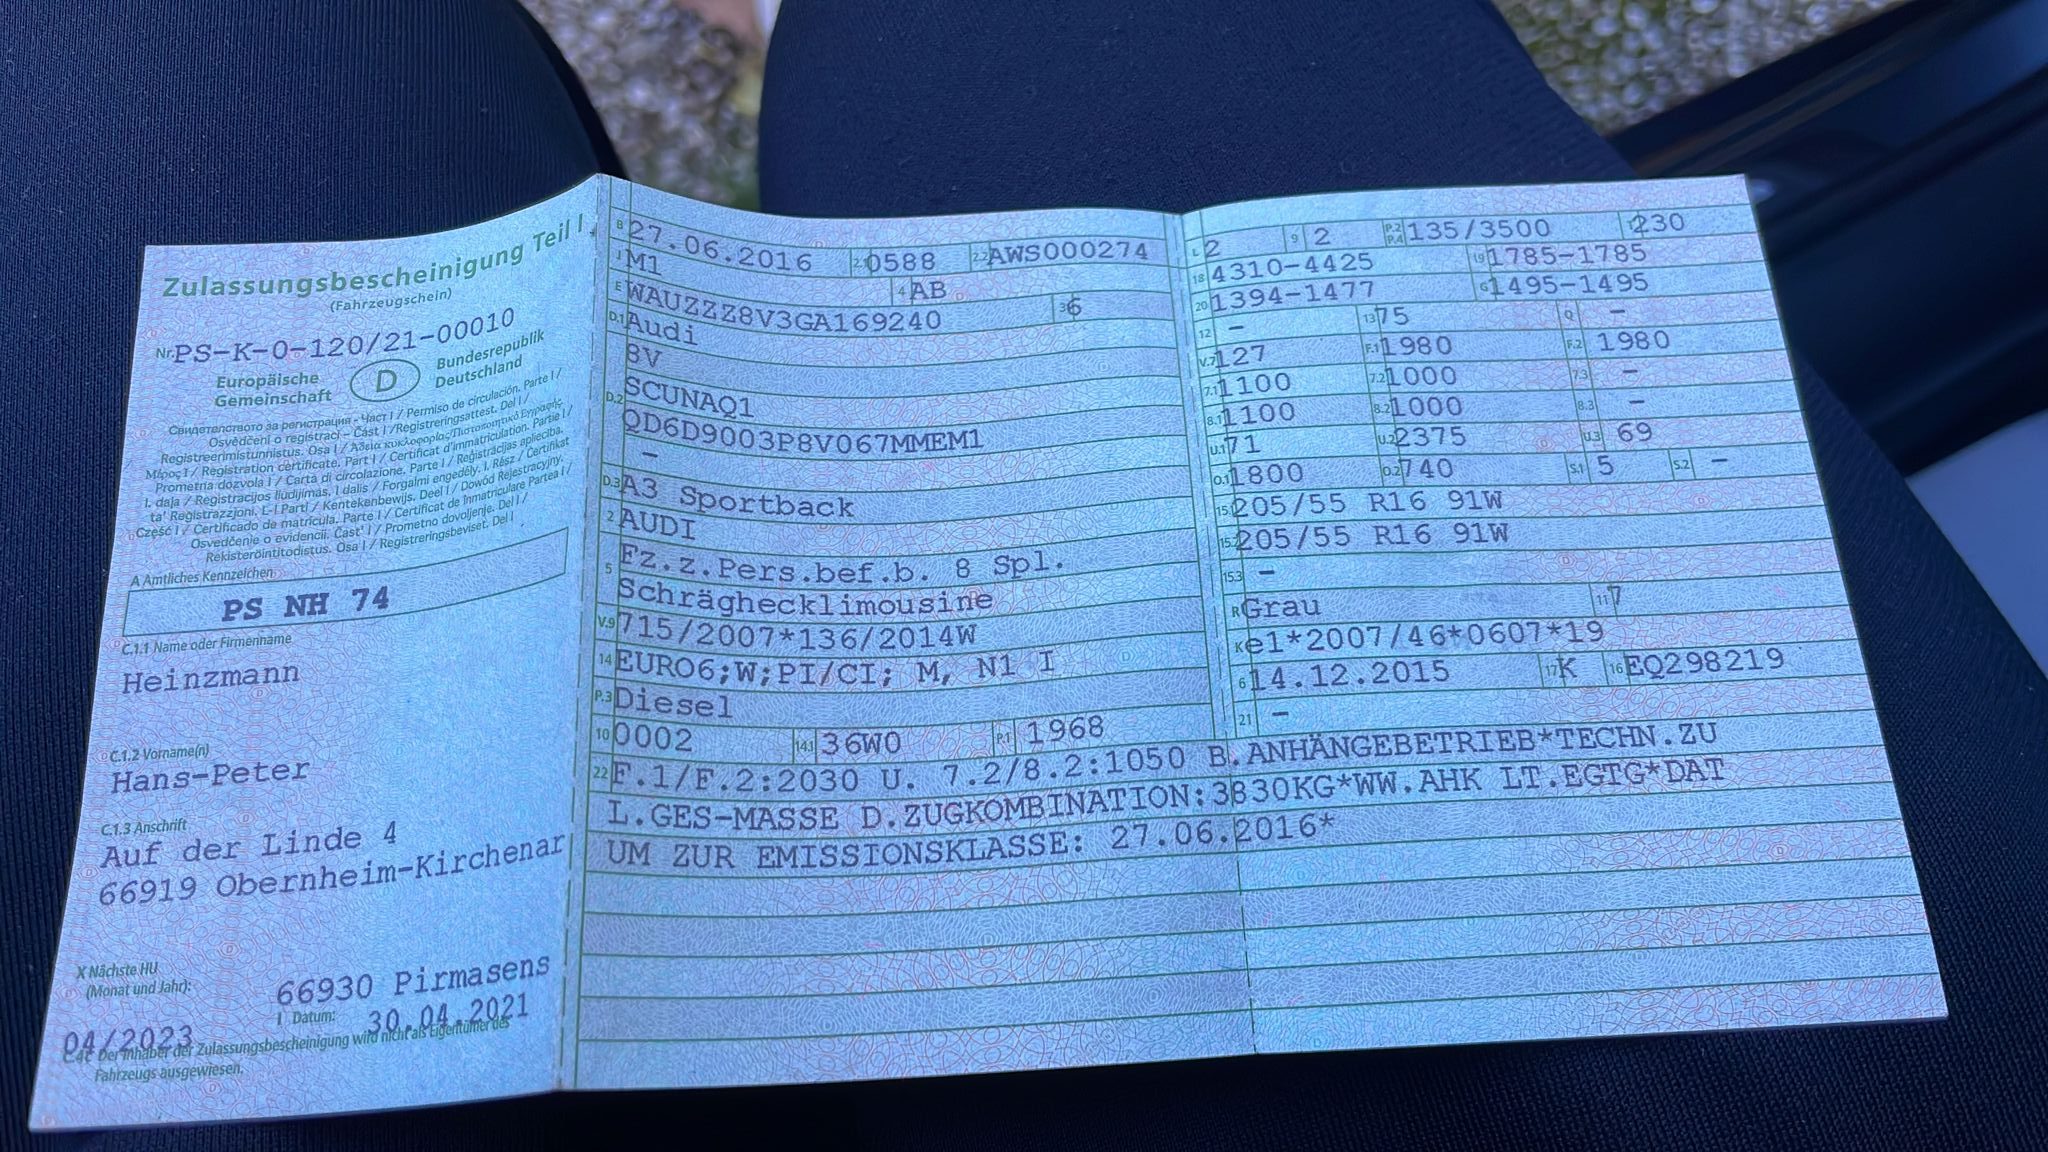 Zulassungsbescheinigung Teil I
(Fahrzeugschein)
Nr. PS-K-0-120/21-00010
Europäische Gemeinschaft
D
Bundesrepublik Deutschland
Свидетелството за регистрация - Част I / Permiso de circulación. Parte I /
Osvědčení o registraci – Část I / Registreringsattest. Del I /
Registreerimistunnistus. Osa I / Άδεια κυκλοφορίας/Πιστοποιητικό Εγγραφής
Μέρος I / Registration certificate. Part I / Certificat d'immatriculation. Partie I /
Prometna dozvola I / Carta di circolazione. Parte I / Reģistrācijas apliecība.
I. daļa / Registracijos liudijimas. I dalis / Forgalmi engedély. I. Rész / Ċertifikat
ta' Reġistrazzjoni. L-I Parti / Kentekenbewijs. Deel I / Dowód Rejestracyjny.
Część I / Certificado de matrícula. Parte I / Certificat de înmatriculare Partea I /
Osvedčenie o evidencii. Časť I / Prometno dovoljenje. Del I /
Rekisteröintitodistus. Osa I / Registreringsbeviset. Del I
A Amtliches Kennzeichen
PS NH 74
C.1.1 Name oder Firmenname
Heinzmann
C.1.2 Vorname(n)
Hans-Peter
C.1.3 Anschrift
Auf der Linde 4
66919 Obernheim-Kirchenar
X Nächste HU
(Monat und Jahr):
66930 Pirmasens
I Datum:
30.04.2021
04/2023
C.4c Der Inhaber der Zulassungsbescheinigung wird nicht als Eigentümer des
Fahrzeugs ausgewiesen.
B 27.06.2016 2.1 0588 2.2 AWS000274
J M1 4 AB
E WAUZZZ8V3GA169240 3 6
D.1 Audi
8V
D.2 SCUNAQ1
QD6D9003P8V067MMEM1
–
D.3 A3 Sportback
2 AUDI
5 Fz.z.Pers.bef.b. 8 Spl.
Schräghecklimousine
V.9 715/2007*136/2014W
14 EURO6;W;PI/CI; M, N1 I
P.3 Diesel
10 0002 14.1 36W0 P.1 1968
L 2 9 2 P.2 P.4 135/3500 T 230
18 4310-4425 19 1785-1785
20 1394-1477 G 1495-1495
12 – 13 75 Q –
V.7 127 F.1 1980 F.2 1980
7.1 1100 7.2 1000 7.3 –
8.1 1100 8.2 1000 8.3 –
U.1 71 U.2 2375 U.3 69
O.1 1800 O.2 740 S.1 5 S.2 –
15.1 205/55 R16 91W
15.2 205/55 R16 91W
15.3 –
R Grau 11 7
K e1*2007/46*0607*19
6 14.12.2015 17 K 16 EQ298219
21 –
22 F.1/F.2:2030 U. 7.2/8.2:1050 B.ANHÄNGEBETRIEB*TECHN.ZU
L.GES-MASSE D.ZUGKOMBINATION:3830KG*WW.AHK LT.EGTG*DAT
UM ZUR EMISSIONSKLASSE: 27.06.2016*